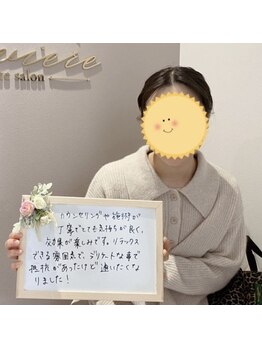 salon
カウンセリングや施術が
丁寧でとても気持ちが良く、
効果が楽しみです。リラックス
できる雰囲気で、デリケートな事で
抵抗があったけど通いたくな
りました！